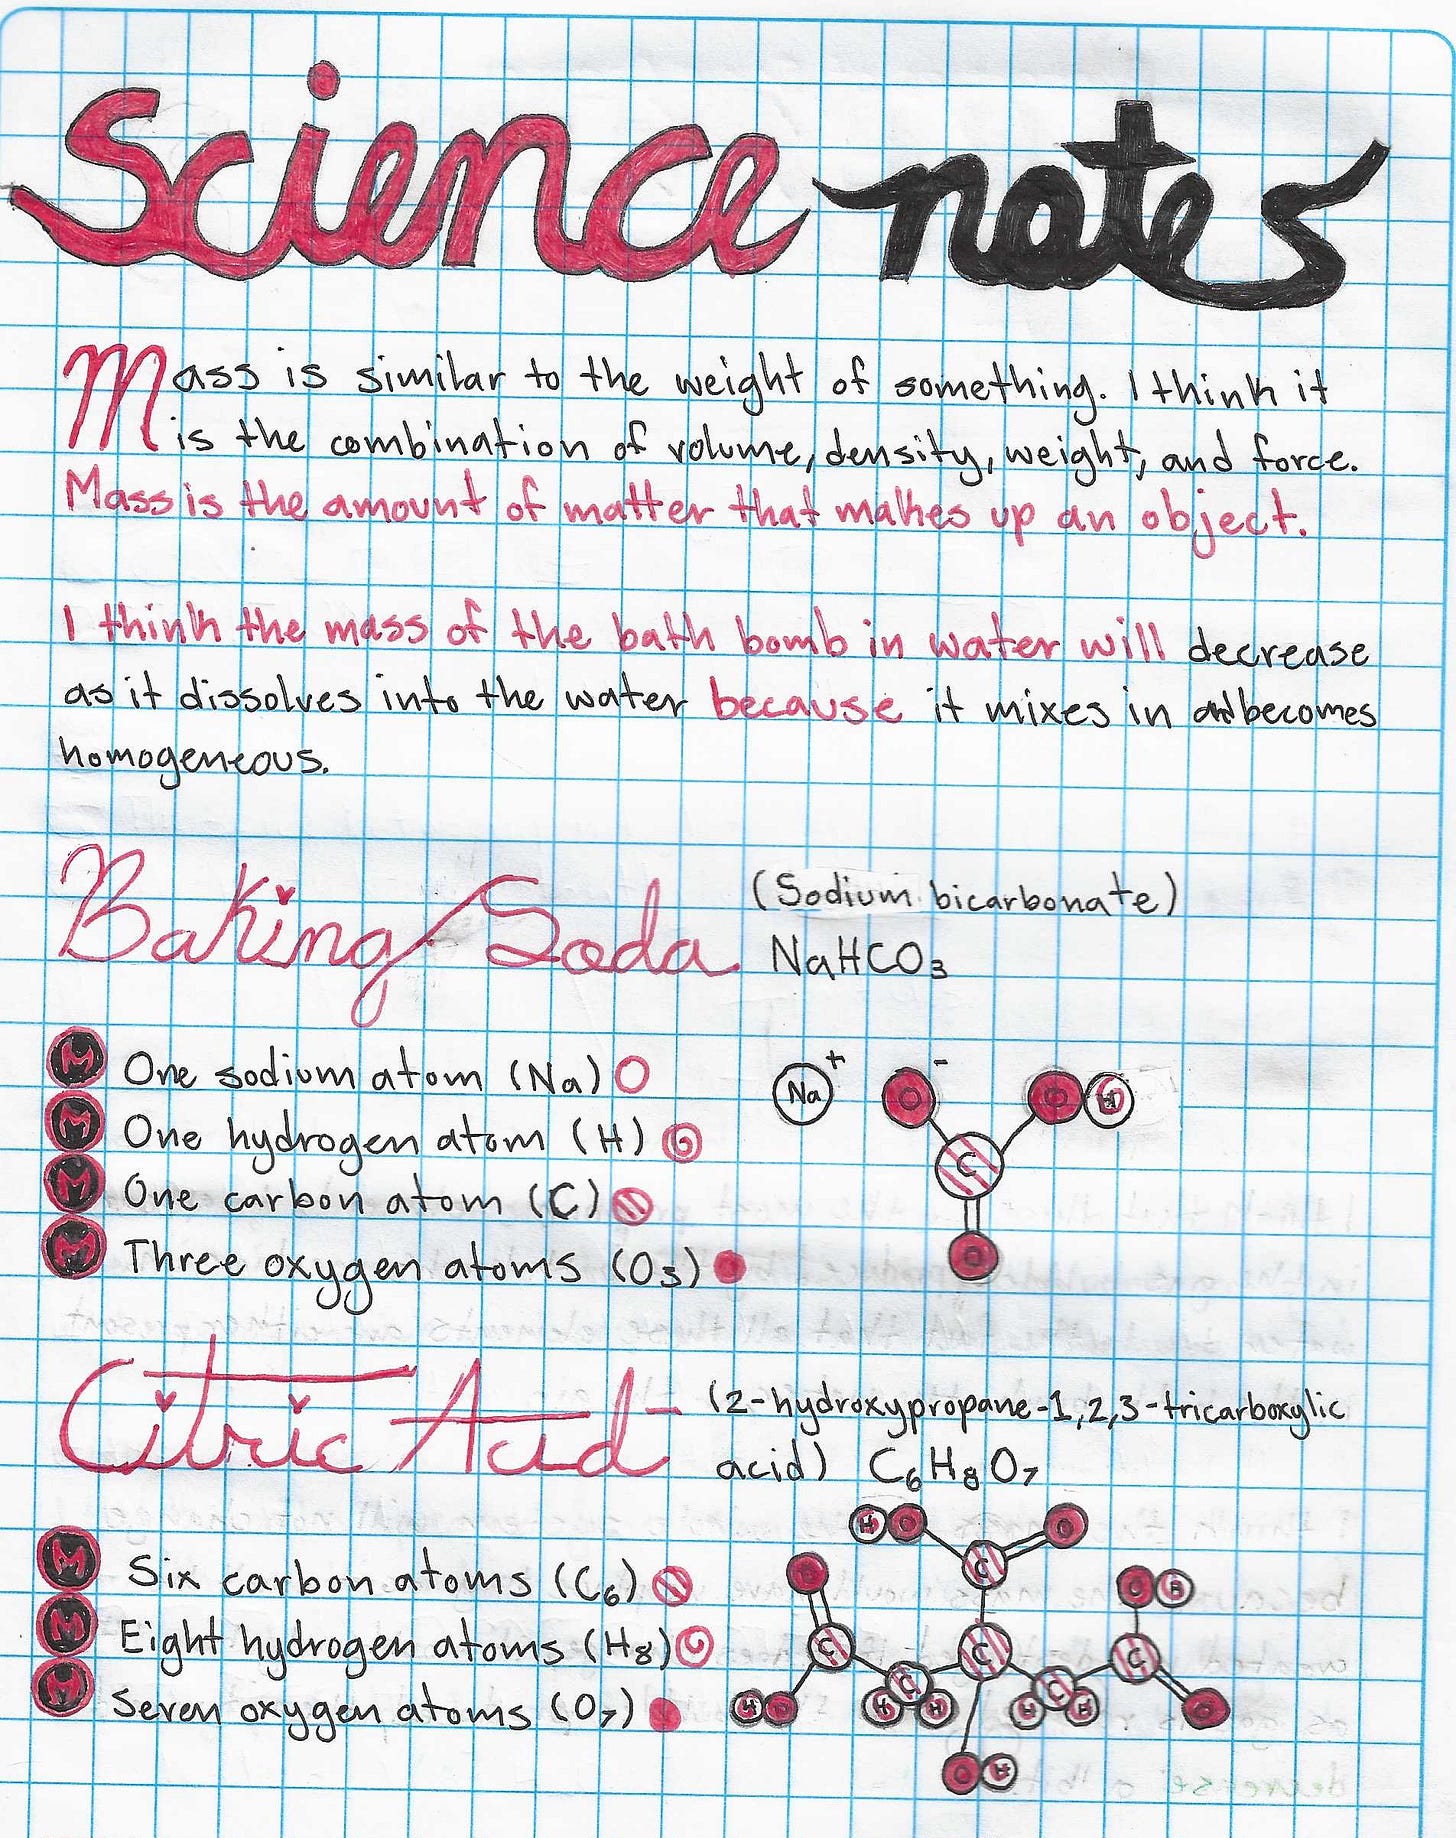 Science notes
Mass is similar to the weight of something. I think it
is the combination of volume, density, weight, and force.
Mass is the amount of matter that makes up an object.
I think the mass of the bath bomb in water will decrease
as it dissolves into the water because it mixes in and becomes
homogeneous.
Baking Soda (Sodium bicarbonate)
NaHCO₃
M One sodium atom (Na)
M One hydrogen atom (H)
M One carbon atom (C)
M Three oxygen atoms (O₃)
Na + O - O H
C
O
Citric Acid (2-hydroxypropane-1,2,3-tricarboxylic
acid) C₆H₈O₇
M Six carbon atoms (C₆)
M Eight hydrogen atoms (H₈)
M Seven oxygen atoms (O₇)
H O O
O C O H
C C C
H O H C H H C H O
O H